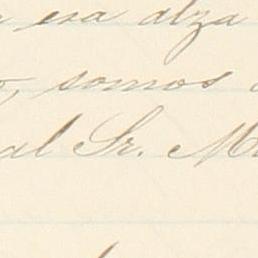 esa alza
somos
al Sr.